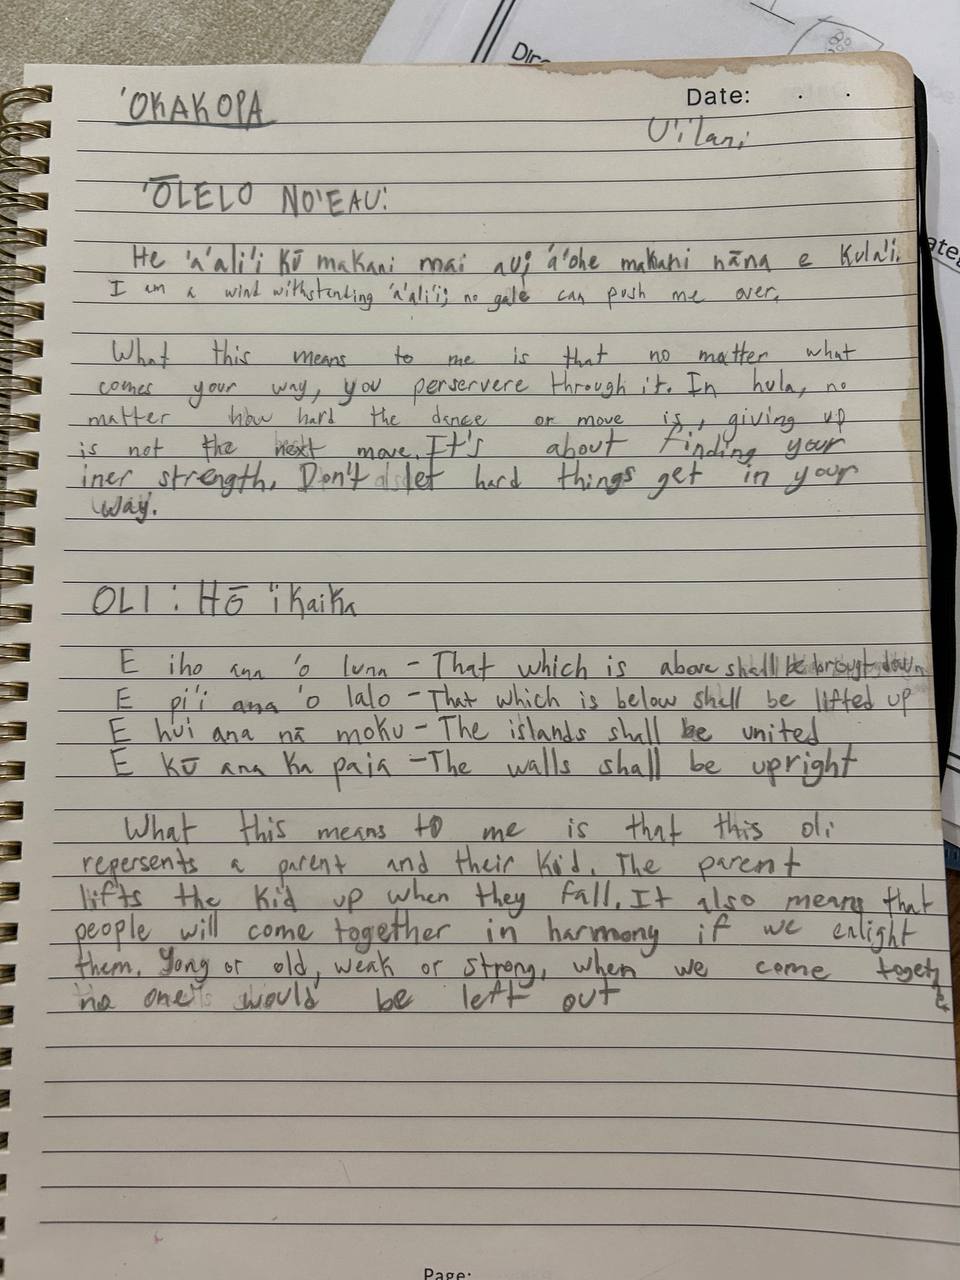 'OKAKOPA
Date: . .
U'ilani
'ŌLELO NO'EAU:
He 'a'ali'i Kū maKani mai au; 'a'ohe makani nāna e Kula'i.
I am a wind withstanding 'a'ali'i; no gale can push me over.
What this means to me is that no matter what
comes your way, you perservere through it. In hula, no
matter how hard the dance or move is, giving up
is not the next move. It's about finding your
iner strength. Don't let hard things get in your
way.
OLI : HŌ 'iKaiKa
E iho ana 'o luna - That which is above shall be brougt down
E pi'i ana 'o lalo - That which is below shall be lifted up
E hui ana nā moku - The islands shall be united
E Kū ana Ka paia - The walls shall be upright
What this means to me is that this oli
repersents a parent and their Kid. The parent
lifts the Kid up when they fall. It also means that
people will come together in harmony if we enlight
them. Yong or old, weak or strong, when we come
no one would be left out
Page: